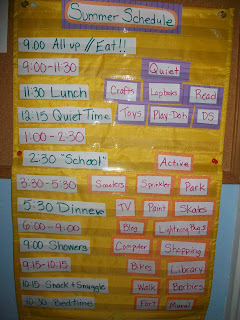 Summer Schedule
9:00 All up // Eat!!
9:00-11:30
Quiet
11:30 Lunch
Crafts Lapbooks Read
12:15 Quiet Time
Toys Play-Doh DS
1:00-2:30
2:30 "School"
Active
3:30-5:30 Scooters Sprinkler Park
5:30 Dinner
TV Paint Skates
6:00-9:00
Blog Lightning Bugs
9:00 Showers
Computer Shopping
9:15-10:15
Bikes Library
10:15 Snack + Snuggle
Walk Barbies
10:30 Bedtime
Fort Mural